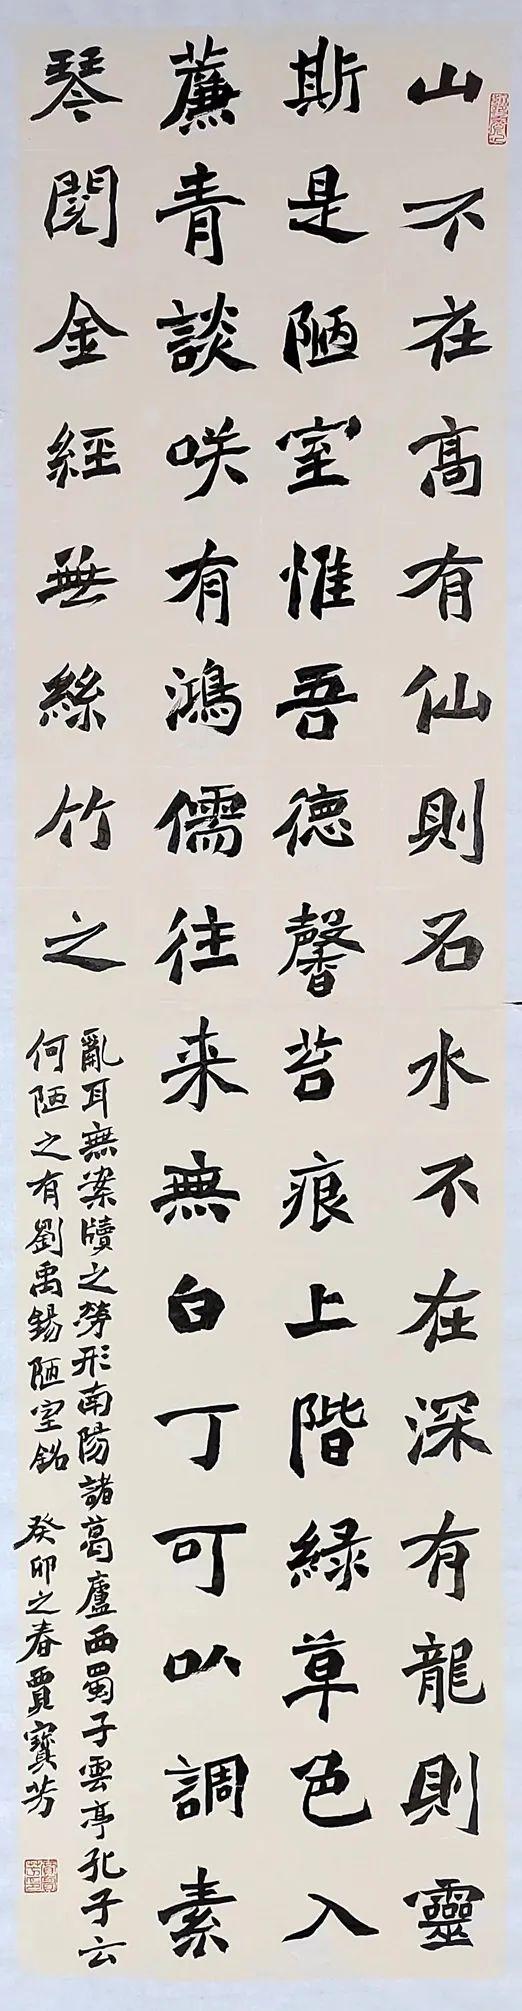 山不在高有仙則名水不在深有龍則靈
斯是陋室惟吾德馨苔痕上階緑草色入
薕青談咲有鴻儒往来無白丁可以調素
琴閲金經無絲竹之
亂耳無案牘之勞形南陽諸葛廬西蜀子雲亭孔子云
何陋之有劉禹錫陋室銘 癸卯之春賈寶芳